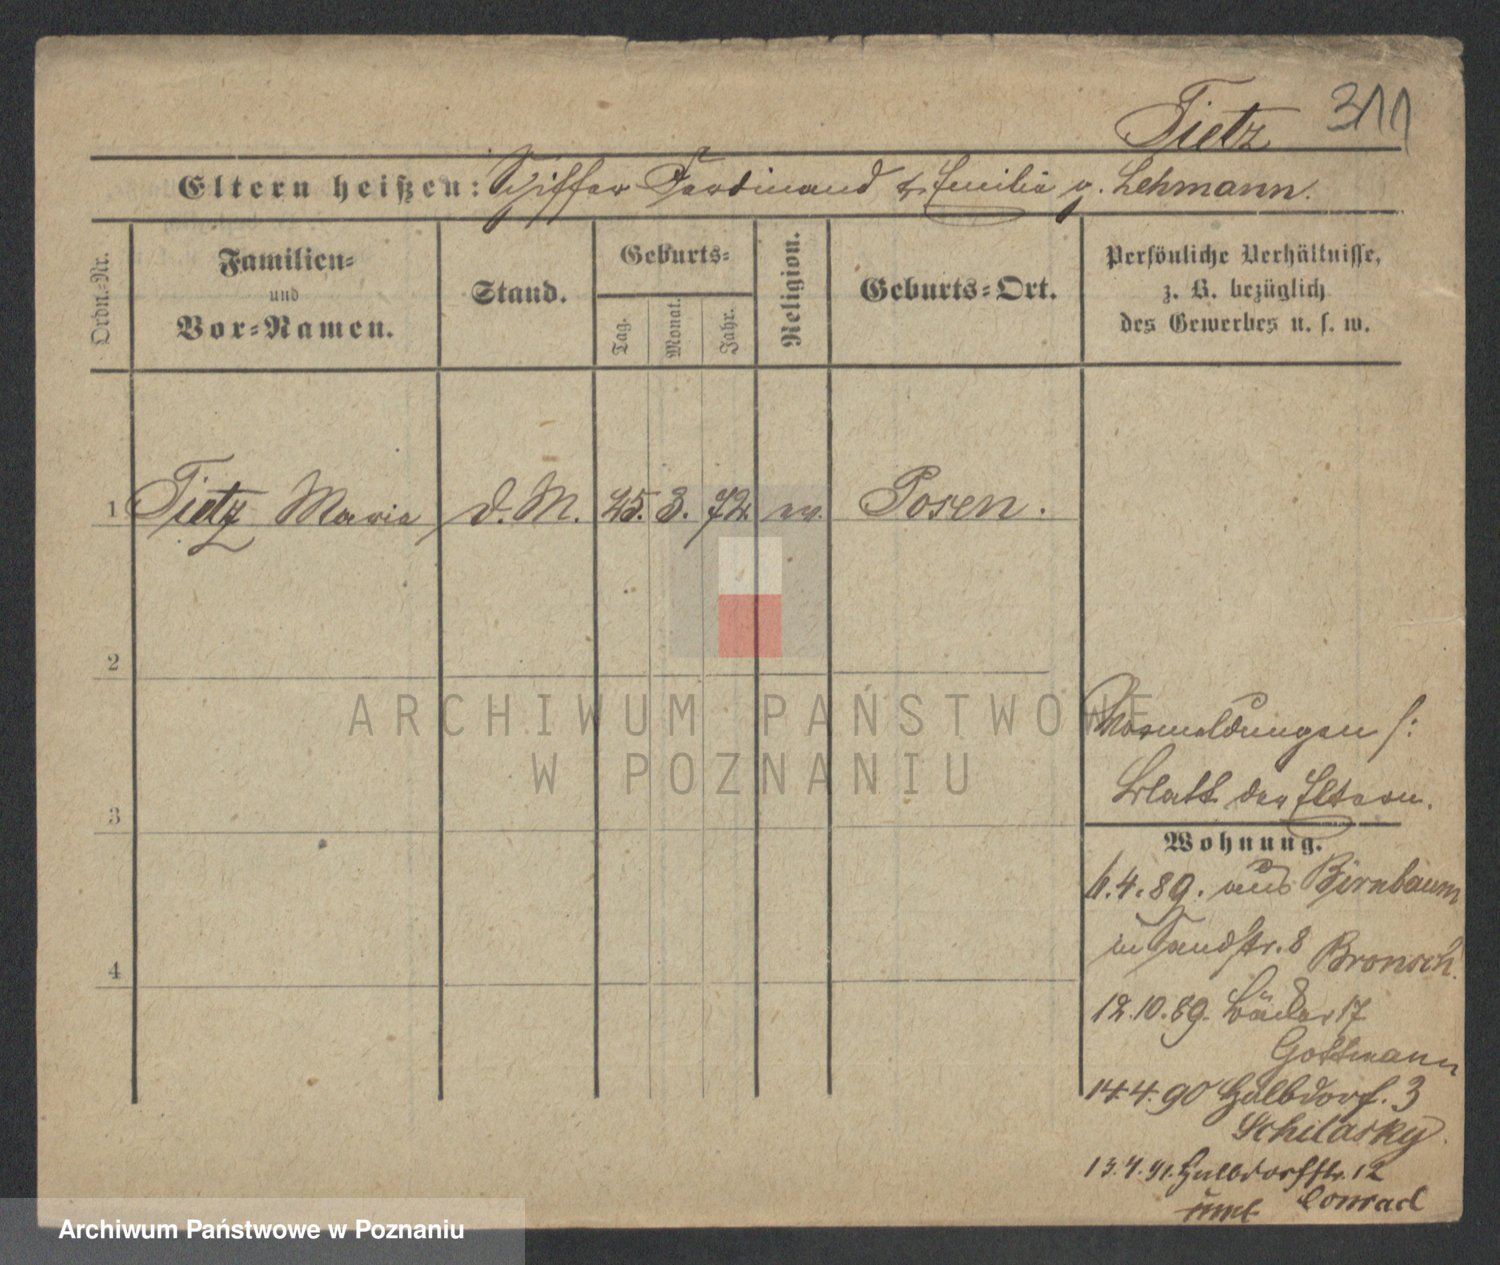 Tietz 311
Eltern heißen: Schiffer Ferdinand & Emilie g. Lehmann.
Ordn.-Nr.
Familien-
und
Vor-Namen.
Stand.
Geburts-
Tag.
Monat.
Jahr.
Religion.
Geburts-Ort.
Persönliche Verhältnisse,
z. B. bezüglich
des Gewerbes u. s. w.
1 Tietz Marie d. M. 25. 3. 72 ev. Posen.
2
ARCHIWUM PAŃSTWOWE
W POZNANIU
3
4
Ausmeldungen s:
Blatt der Eltern.
Wohnung.
6.4.89. aus Birnbaum
in Sandstr. 8 Bronsch.
12.10.89. Bäcker 17
Gottmann
14.4.90 Halbdorf. 3
Schilasky.
13.4.91. Halbdorfstr. 12
Conrad
Archiwum Państwowe w Poznaniu